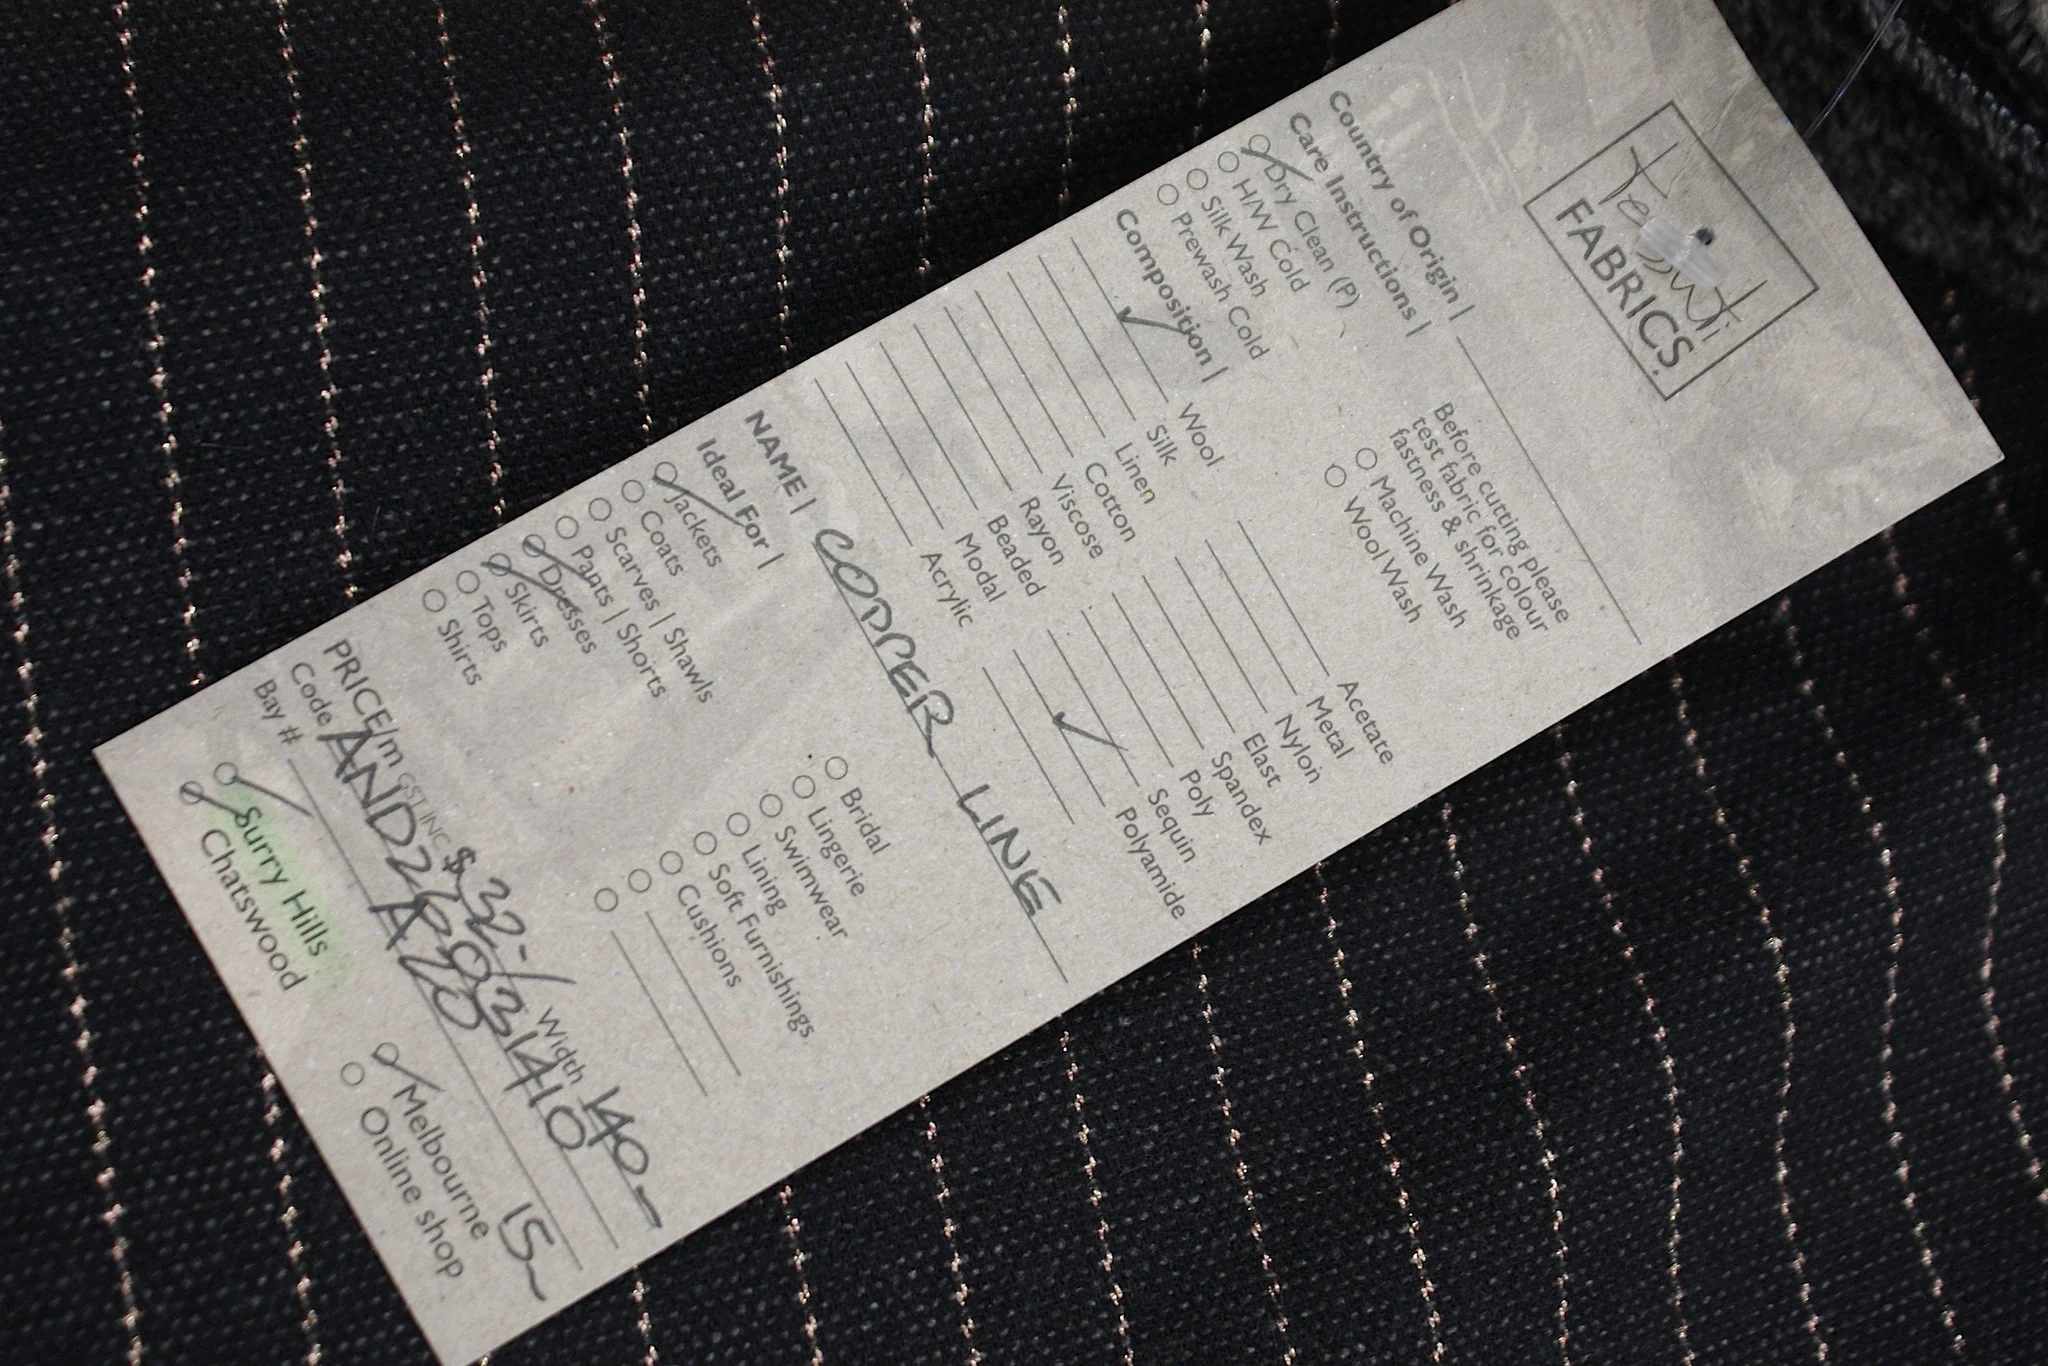 tessuti
FABRICS.
Country of Origin |
Care Instructions |
Before cutting please
test fabric for colour
fastness & shrinkage
Dry Clean (P)
H/W Cold
Silk Wash
Prewash Cold
Machine Wash
Wool Wash
Composition |
Wool
Silk
Linen
Cotton
Viscose
Rayon
Beaded
Modal
Acrylic
Acetate
Metal
Nylon
Elast
Spandex
Poly
Sequin
Polyamide
NAME | COPPER LINE
Ideal For |
Jackets
Coats
Scarves | Shawls
Pants | Shorts
Dresses
Skirts
Tops
Shirts
Bridal
Lingerie
Swimwear
Lining
Soft Furnishings
Cushions
PRICE/m GST INC $32-/ Width 140-
Code
Bay # A20
15
Surry Hills
Chatswood
Melbourne
Online shop